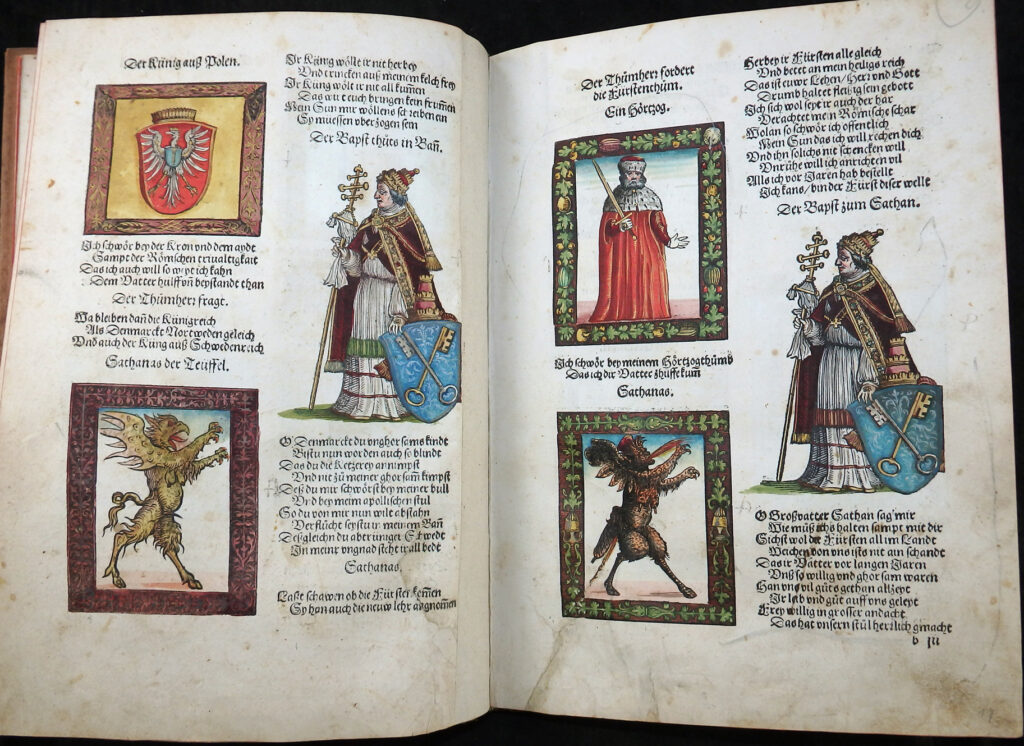 Der Künig auß Polen.
Ich schwör bey der Kron vnd dem aydt
Sampt der Römischen triualtigkait
Das ich auch will so weyt ich kahn
Dem Vatter hulff vnd beystandt than
Der Thümherr fragt.
Wa bleiben dañ die Künigreich
Als Denmarckt Nortweden geleich
Vnd auch der Küng auß Schwedenreich
Sathanas der Teuffel.
Ir Küng wölt ir nit herbey
Vnd trincken auß meinem kelch frey
Ir Küng wölt ir nit all kum̃en
Das wirt euch bringen kein frum̃en
Mein Sun mir wöllens schreiben ein
Sy muessen vberzogen sein
Der Bapst thüts in Bañ.
O Denmarckt du vnghorsams kindt
Bistu nun worden auch so blindt
Das du die Ketzerey annimpst
Vnd nit zu meiner ghorsam kimpst
Deß du mir schwörst bey meiner bull
Vnd bey meim apostlischen stul
So du von mir nun wilt abstahn
Verflucht seystu in meinem Bañ
Deßgleychn du aber üniger Schwedt
In meinr vngnad steht ir all bedt
Sathanas.
Last schawen ob die Fürsten kem̃en
Sy han auch die neuw lehr angnomen
Der Thümherr fordert
die Fürstenthüm.
Ein Hörtzog.
Ich schwör bey meinem Hörtzogthümb
Das ich dir Vatter zhilff kum
Sathanas.
Herbey ir Fürsten alle gleich
Vnd bettet an man heiligs reich
Das ist euwr Lehen / Herr vnd Gott
Drumb haltet fleissig sein gebott
Ich sich wol seyt ir auch der har
Verachtet mein Römische schar
Wolan so schwör ich offentlich
Mein Sun das ich will rechen dich
Vnd ihn solichs nit schencken will
Vnrühe will ich anrichten vil
Alls ich vor Jaren hab bestelle
Ich kans / bin der Fürst diser welle
Der Bapst zum Sathan.
O Großvatter Sathan sag mir
Wie müß ichs halten sampt mit dir
Sichst wol die Fürsten all im Landt
Wachen von vns ists nit ain schandt
Das ir Vatter vor langen Jaren
Vnß so willig vnd ghorsam waren
Han vns vil güts gethan allzeyt
Ir leib vnd güt auff vns geleyt
Frey willig in grosser andacht
Das hat vnsern stül herrlich gmacht
b iij